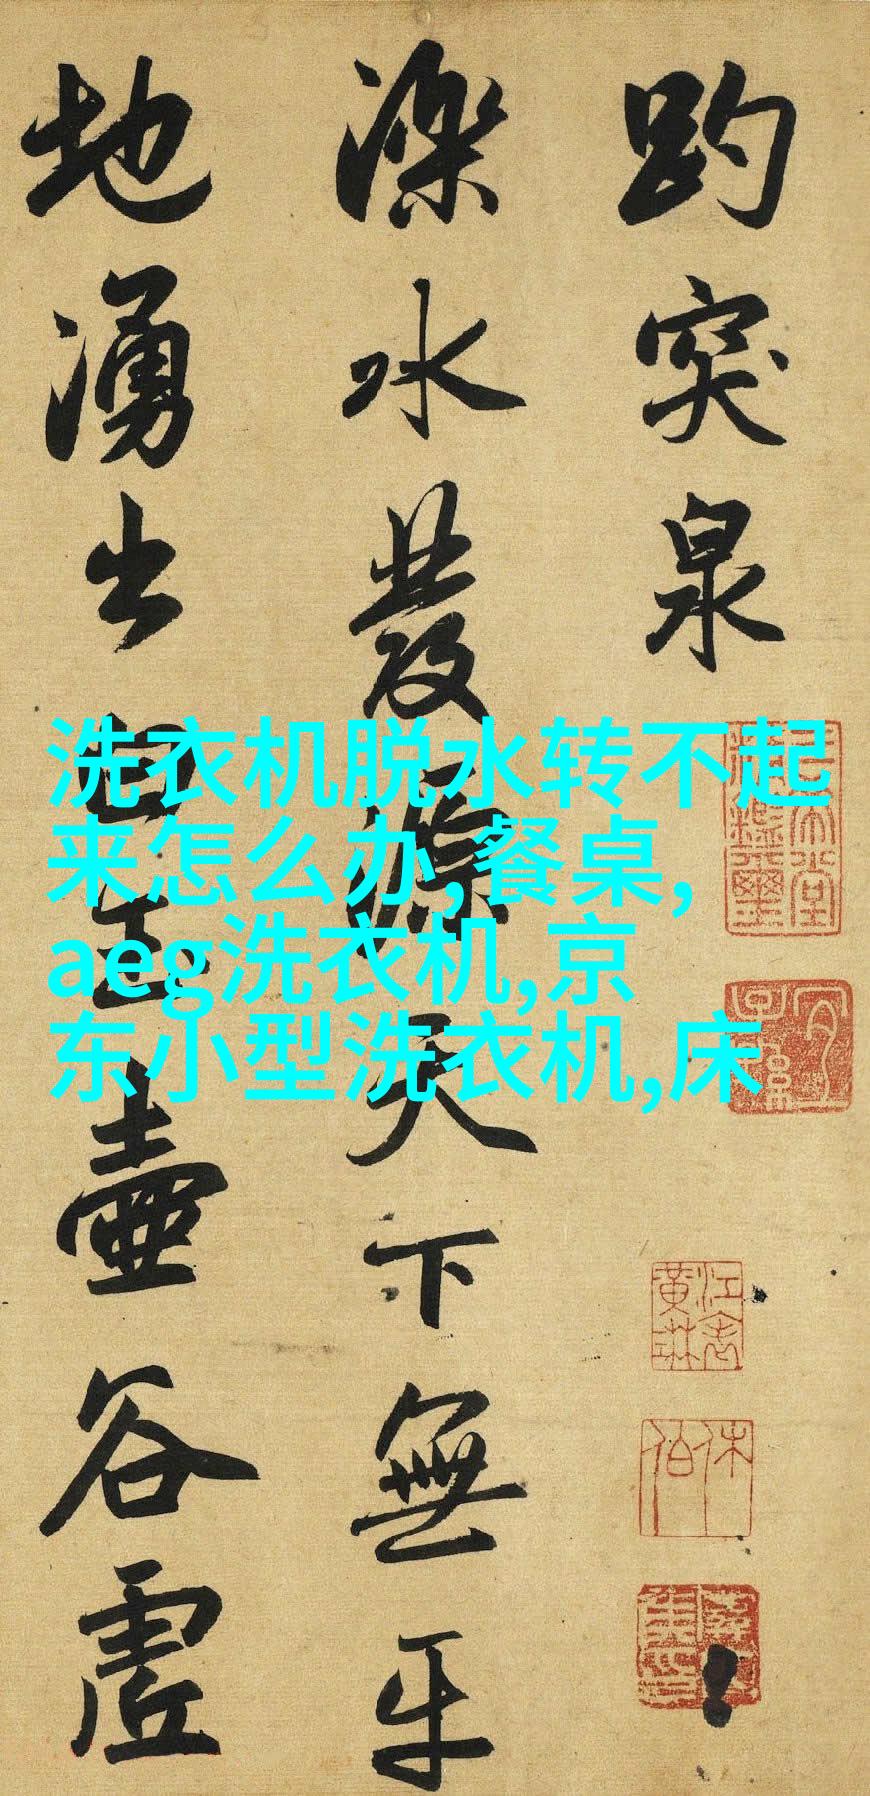 趵突泉
濼水發源天下無平
地湧出白玉壺谷虛
洗衣机脱水转不起
来怎么办,餐桌,
aeg洗衣机,京
东小型洗衣机,床
江表黃琳
休伯